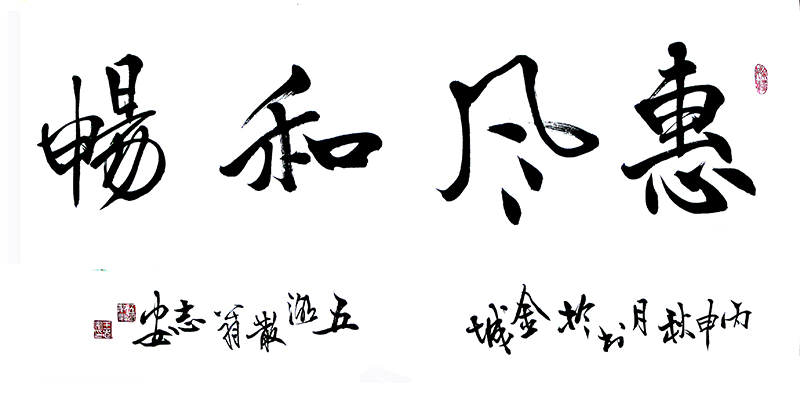 惠风和暢
丙申秋月书於金城
五湖散翁志安